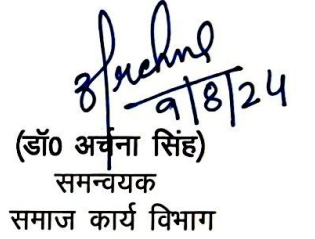 Archna
9/8/24
(डॉ0 अर्चना सिंह)
समन्वयक
समाज कार्य विभाग